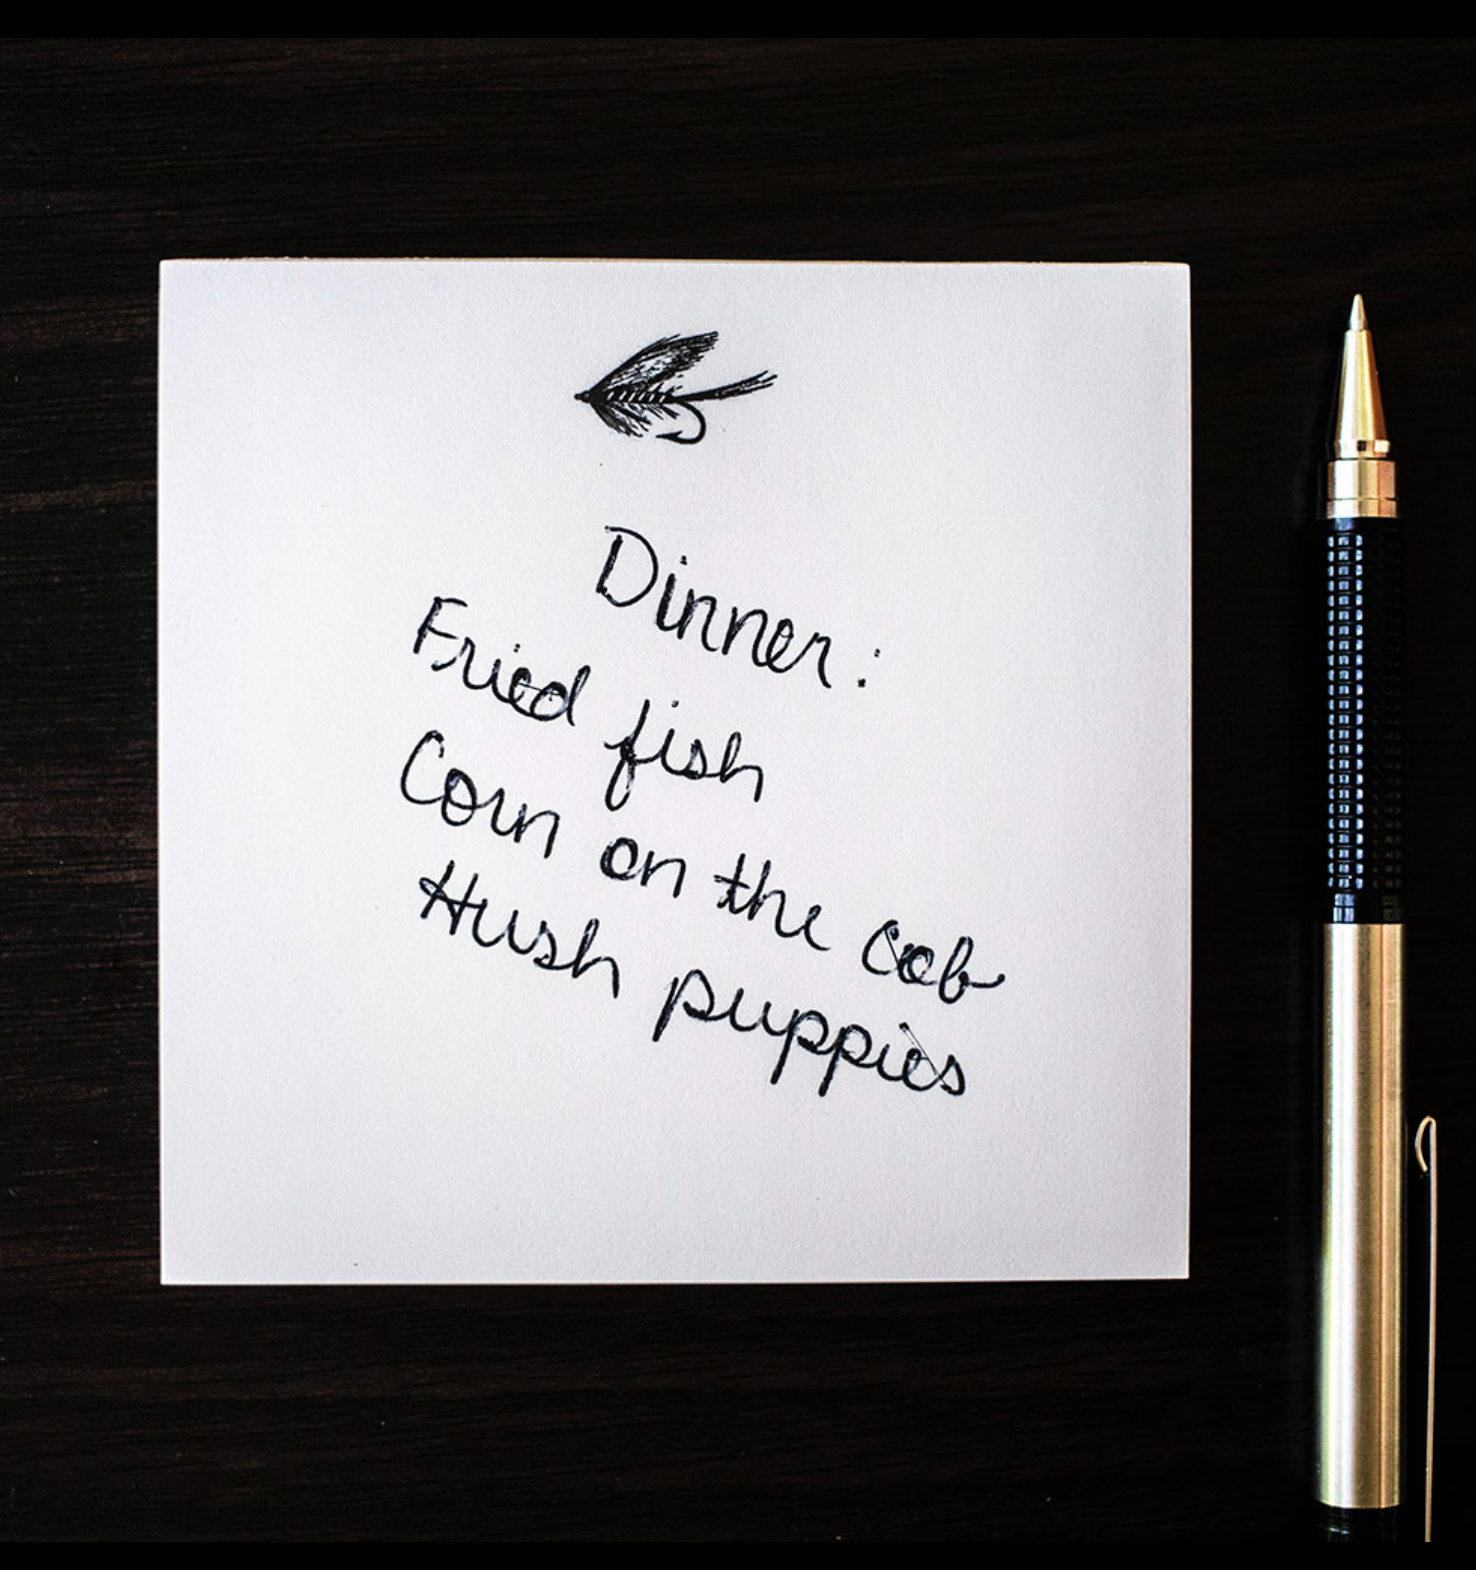 Dinner:
Fried fish
Corn on the cob
Hush puppies